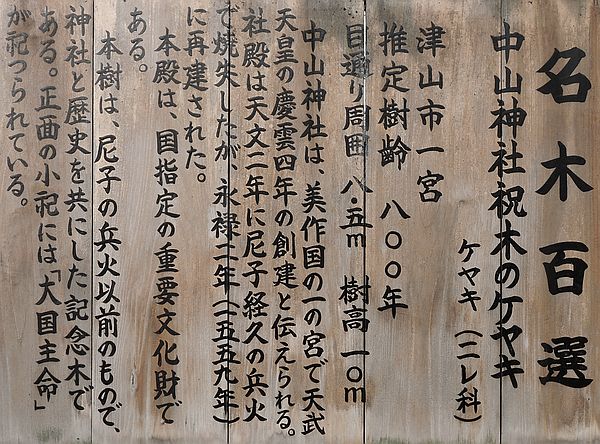 名木百選
中山神社祝木のケヤキ
ケヤキ（ニレ科）
津山市一宮
推定樹齢　八〇〇年
目通り周囲　八・五m　樹高　一〇m
中山神社は、美作国の一の宮で天武
天皇の慶雲四年の創建と伝えられる。
社殿は天文二年に尼子経久の兵火
で焼失したが、永禄二年（一五五九年）
に再建された。
本殿は、国指定の重要文化財で
ある。
本樹は、尼子の兵火以前のもので、
神社と歴史を共にした記念木で
ある。正面の小祀には「大国主命」
が祀つられている。